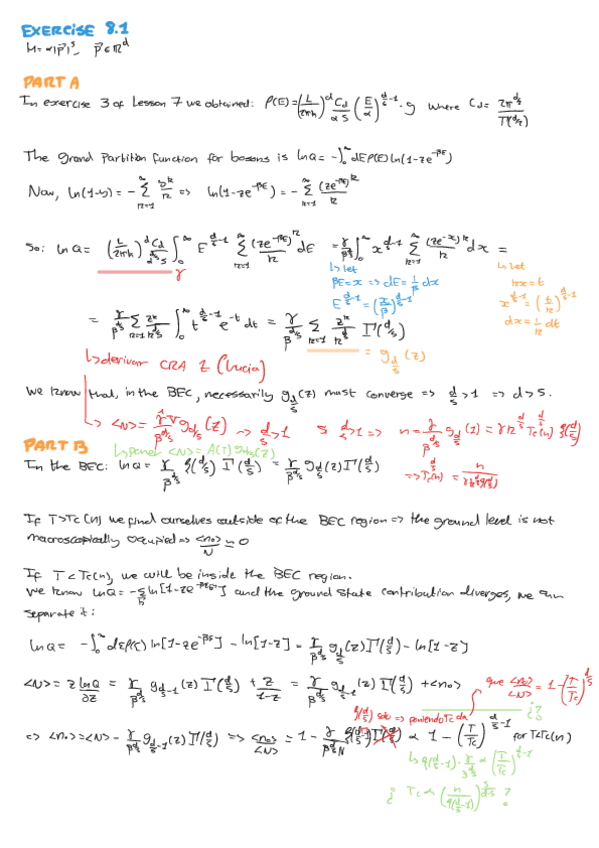 EXERCISE 8.1
H = α|p⃗|^s, p⃗ ∈ ℝ^d
PART A
In exercise 3 of Lesson 7 we obtained: ρ(E) = (L/2πħ)^d C_d/(α s) (E/α)^(d/s - 1) · g where C_d = 2π^(d/2)/Γ(d/2)
The Grand Partition function for bosons is ln Q = -∫₀^∞ dE ρ(E) ln(1-ze^(-βE))
Now, ln(1-y) = -∑_(k=1)^∞ y^k/k => ln(1-ze^(-βE)) = -∑_(k=1)^∞ (ze^(-βE))^k/k
So: ln Q = (L/2πħ)^d C_d/(α^(d/s) s) ∫₀^∞ E^(d/s - 1) ∑_(k=1)^∞ (ze^(-βE))^k/k dE = γ/β^(d/s) ∫₀^∞ x^(d/s - 1) ∑_(k=1)^∞ (ze^(-x))^k/k dx =
γ
↳ let
βE = x => dE = 1/β dx
E^(d/s - 1) = (x/β)^(d/s - 1)
↳ let
kx = t
x^(d/s - 1) = (t/k)^(d/s - 1)
dx = 1/k dt
= γ/β^(d/s) ∑_(k=1) z^k/k^(d/s) ∫₀^∞ t^(d/s - 1) e^(-t) dt = γ/β^(d/s) ∑_(k=1) z^k/k^(d/s) Γ(d/s)
= g_(d/s)(z)
↳ derivar CRA z (Lucia)
We know that, in the BEC, necessarily g_(d/s)(z) must converge => d/s > 1 => d > s.
↳ <N> = γV/β^(d/s) g_(d/s)(z) → d/s > 1 s d/s > 1 => n = γ/β^(d/s) g_(d/s)(1) = γ k^(d/s) Tc(n)^(d/s) ζ(d/s)
↳ poner <N> = A(T) g_(d/s)(z)
=> Tc^(d/s)(n) = n/(γ k^(d/s) ζ(d/s))
PART B
In the BEC: ln Q = γ/β^(d/s) ζ(d/s) Γ(d/s) = γ/β^(d/s) g_(d/s)(z) Γ(d/s)
If T > Tc(n) we find ourselves outside of the BEC region => the ground level is not
macroscopically occupied => <n₀>/N ≈ 0
If T < Tc(n), we will be inside the BEC region.
We know ln Q = -∑ ln[1-ze^(-βE)] and the ground state contribution diverges, we can
separate it:
ln Q = -∫₀^∞ dE ρ(E) ln[1-ze^(-βE)] - ln[1-z] = γ/β^(d/s) g_(d/s)(z) Γ(d/s) - ln[1-z]
<N> = z ∂lnQ/∂z = γ/β^(d/s) g_(d/s - 1)(z) Γ(d/s) + z/(1-z) = γ/β^(d/s) g_(d/s - 1)(z) Γ(d/s) + <n₀>
que <n₀>/<N> = 1-(T/Tc)^(d/s)
¿?
ζ(d/s) solo => poniendo Tc da
=> <n₀> = <N> - γ/β^(d/s) g_(d/s - 1)(z) Γ(d/s) => <n₀>/<N> = 1 - γ/(β^(d/s) N) ζ(d/s - 1) Γ(d/s) ∝ 1 - (T/Tc)^(d/s - 1) for T<Tc(n)
↳ ζ(d/s - 1) · γ/β^(d/s) ∝ (T/Tc)^(d/s - 1)
¿ Tc ∝ (n/ζ(d/s - 1))^(s/(d-s)) ?